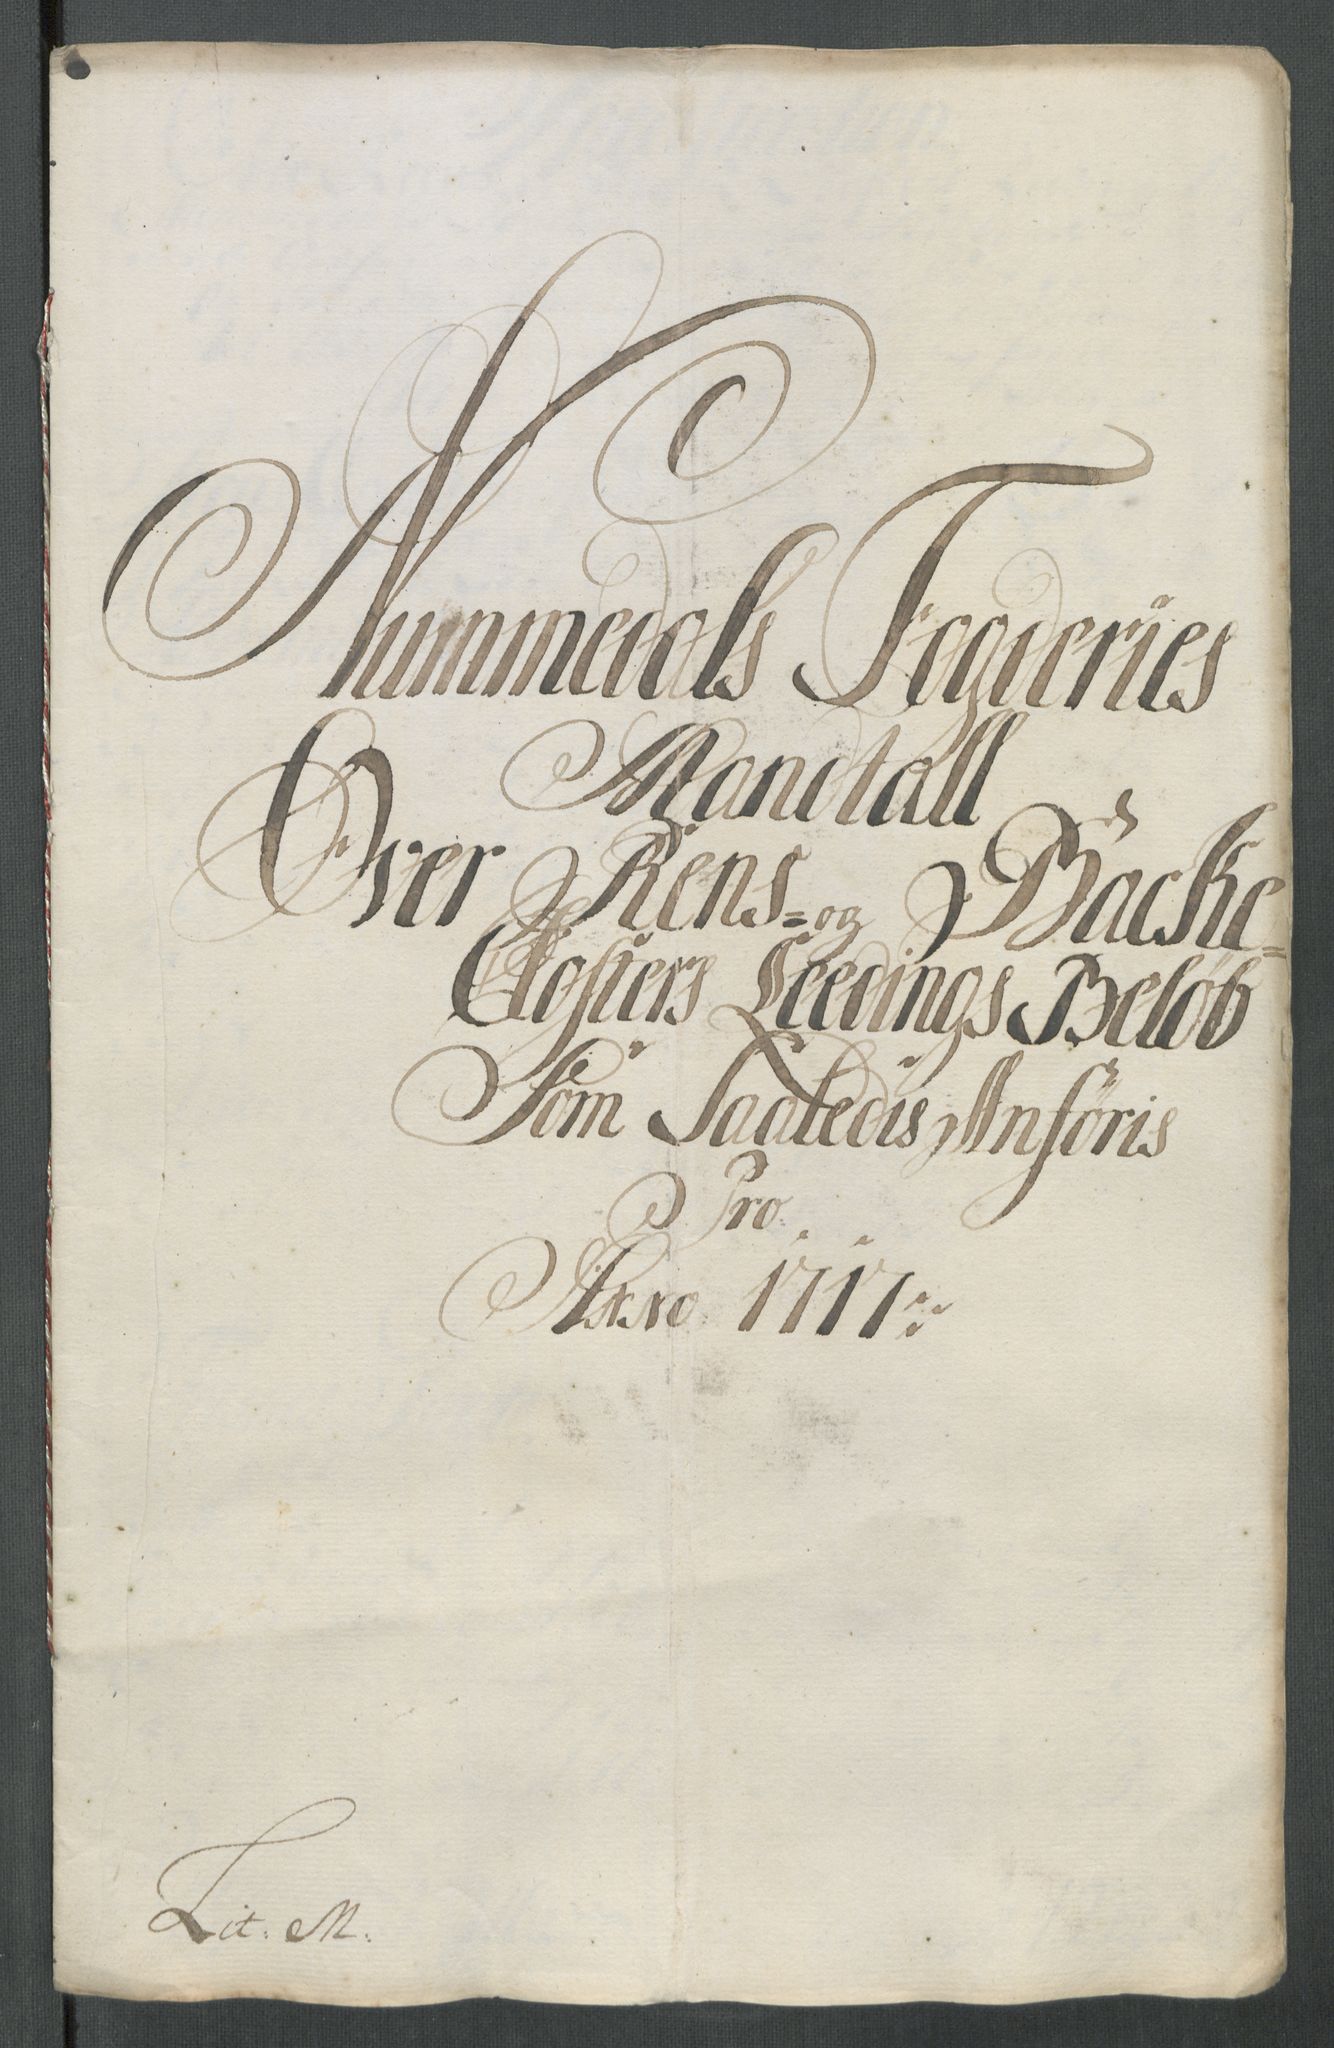 Nummedals Fogderies
Mandtall
Over Rens- og Bäcke-
Closters Leedings Beløb
Som Saaledis Anføris
Pro
Anno 1717:
Lit. M.